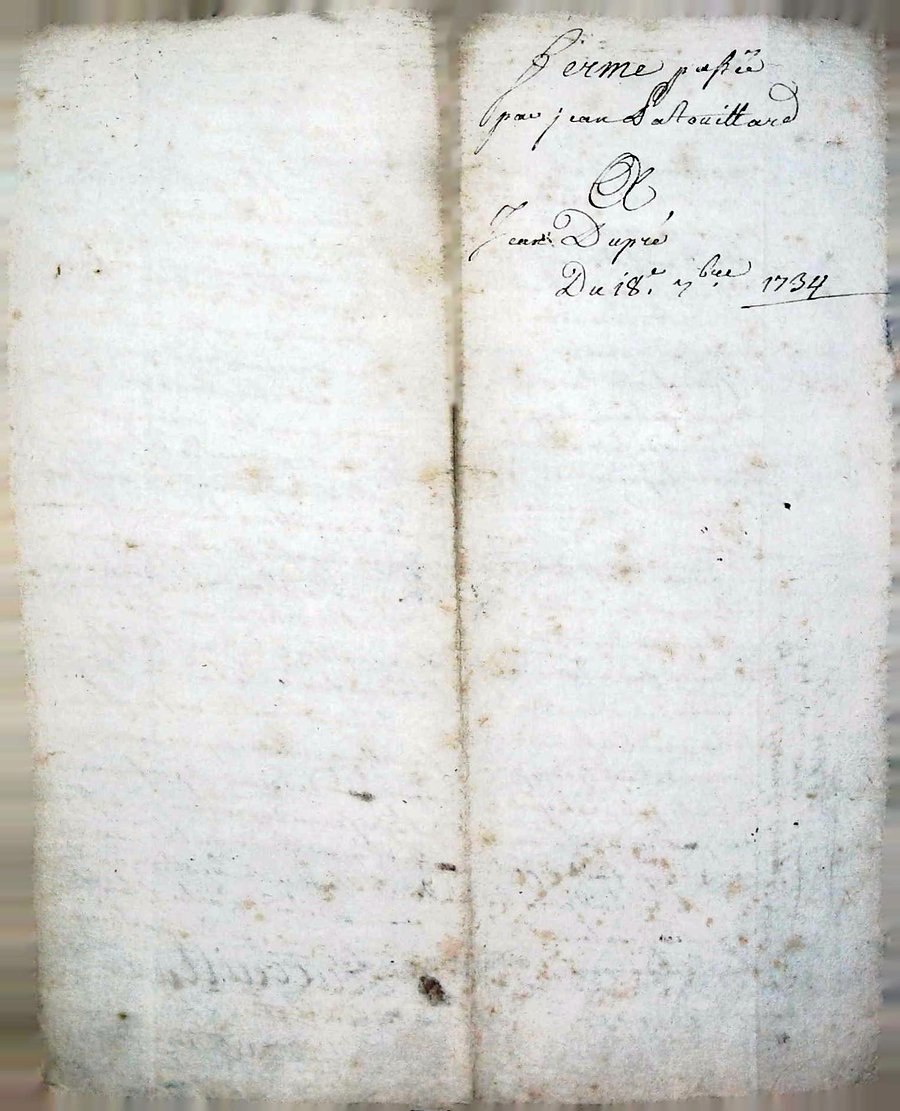 Ferme passée
par jean Patouillard
A
Jean Dupré
Du 18.e 7.bre 1734